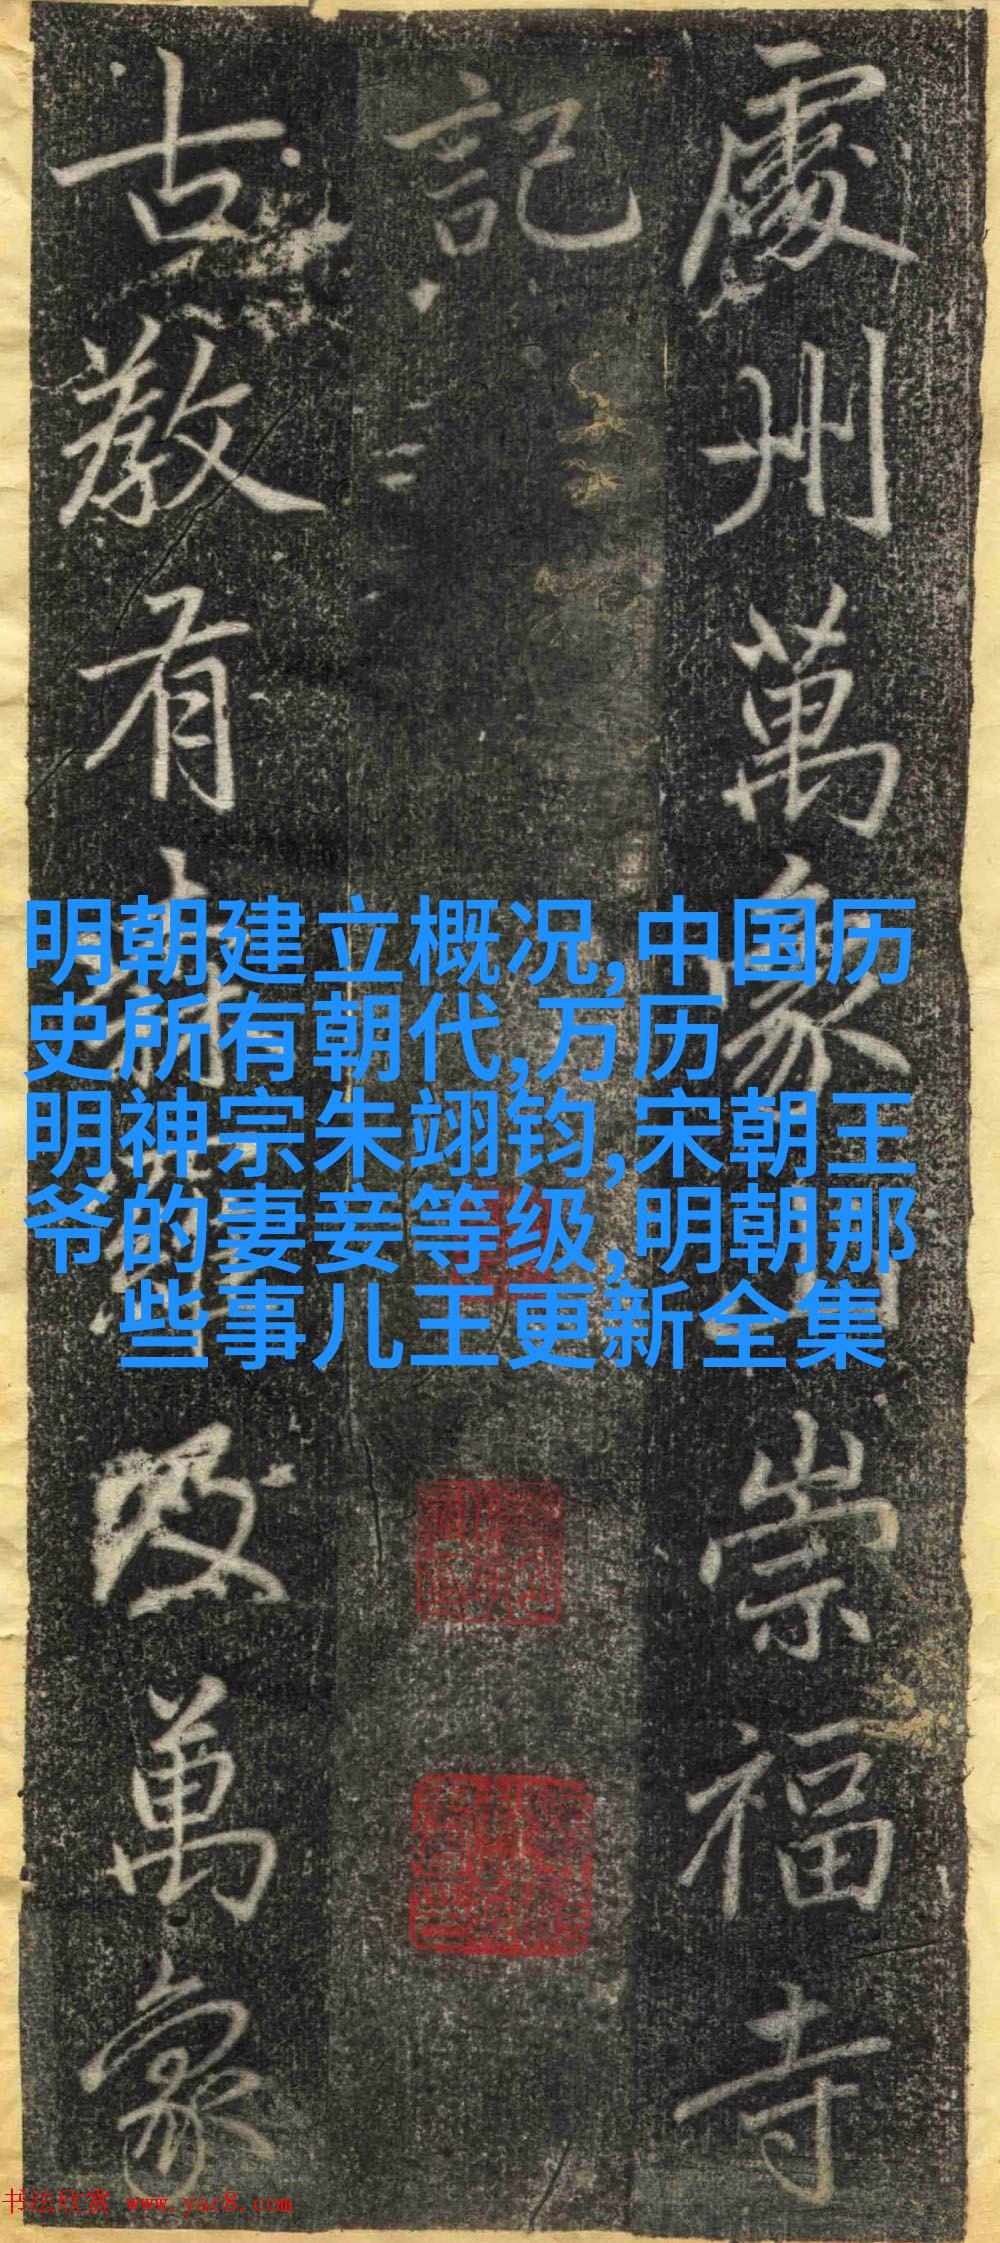 處州萬象山崇福寺
記
古教有
萬象
明朝建立概况,中国历
史所有朝代,万历
明神宗朱翊钧,宋朝王
爷的妻妾等级,明朝那
些事儿王更新全集
书法欣赏 www.yac8.com